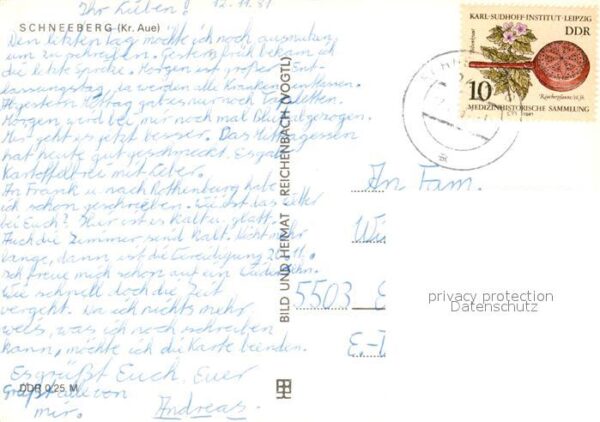 Ihr Lieben! 12.11.81
SCHNEEBERG (Kr. Aue)
Den letzten Tag möchte ich noch ausnutzen
um zu schreiben. Gestern früh bekam ich
die letzte Spritze. Morgen ist großer Ent-
lassungstag, da werden alle Kranken entlassen.
Ab gestern Mittag gab es nur noch Tabletten.
Morgen wird bei mir noch mal Blut abgezogen.
Mir geht es jetzt besser. Das Mittagessen
hat heute gut geschmeckt. Es gab
Kartoffelbrei mit Leber.
An Frank u. nach Rothenburg habe
ich schon geschrieben. Wie ist das Wetter
bei Euch? Hier ist es kalt u. glatt.
Auch die Zimmer sind kalt. Nicht mehr
lange, dann ist die Vereidigung 20.11.
ich freue mich schon auf ein
Wie schnell doch die Zeit
vergeht. Da ich nichts mehr,
weis, was ich noch schreiben
kann, möchte ich die Karte beenden.
Es grüßt Euch, Euer
Grüßt alle von
mir. Andreas.
DDR 0,25 M
BILD UND HEIMAT REICHENBACH (VOGTL)
KARL-SUDHOFF-INSTITUT · LEIPZIG
DDR
10
Räucherpfanne/18. Jh.
MEDIZINHISTORISCHE SAMMLUNG
An Fam.
5503
privacy protection
Datenschutz